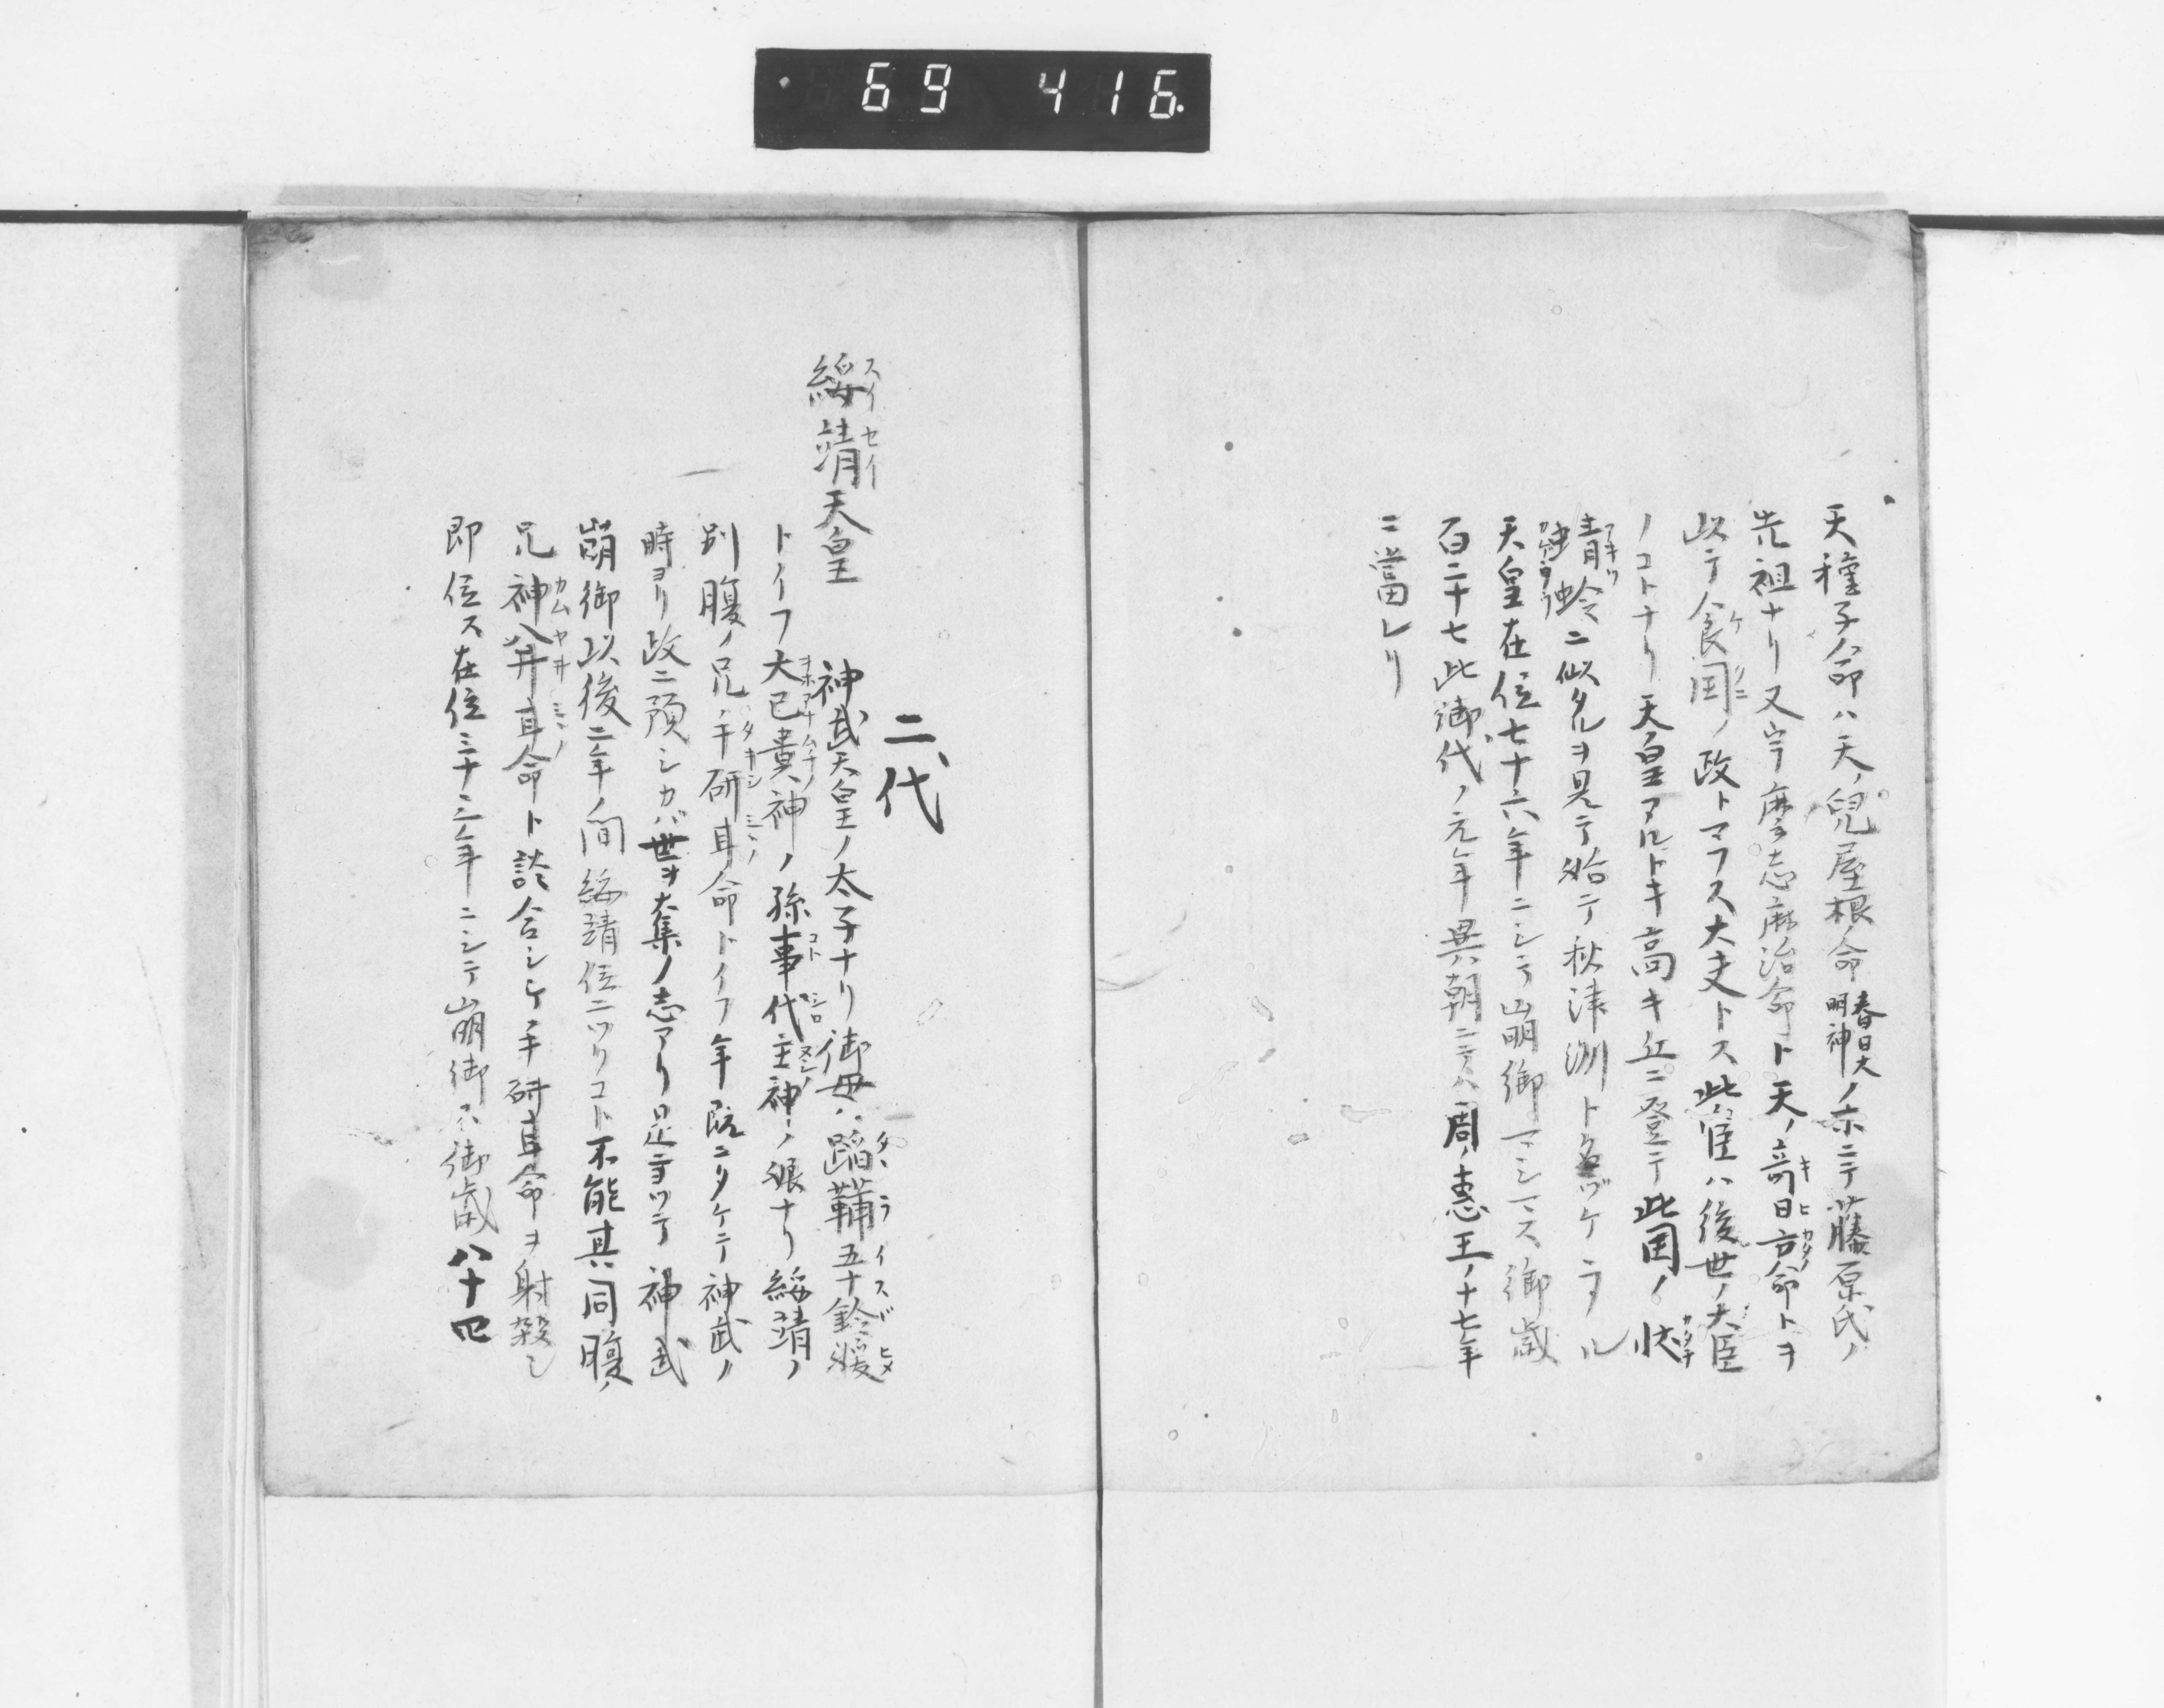 69 416.
天種子ノ命ハ天ノ兒屋根命春日大明神ノ末ニテ藤原氏ノ
先祖ナリ又宇摩志麻治命ト天ノ奇日方命トヲ
以テ食国ノ政トマフス大夫トス此官ハ後世ノ大臣
ノコトナリ天皇アルトキ高キ丘ニ登テ此国ノ状
蜻蛉ニ似タルヲ見テ始テ秋津洲ト名ヅケラル
天皇在位七十六年ニシテ崩御マシマス御歳
百二十七此御代ノ元年異朝ニテハ周ノ恵王ノ十七年
ニ當レリ
二代
綏靖天皇
神武天皇ノ太子ナリ御母ハ蹈鞴五十鈴媛
トイフ大已貴神ノ孫事代主神ノ娘ナリ綏靖ノ
別腹ノ兄ノ手研耳命トイフ年既ニタケテ神武ノ
時ヨリ政ニ預シカバ世ヲ奪ノ志アリ是ニヨツテ神武
崩御以後二年ノ間綏靖位ニツクコト不能其同腹ノ
兄神八井耳命ト談合シケ手研耳命ヲ射殺シ
即位ス在位三十三年ニシテ崩御ス御歳八十四